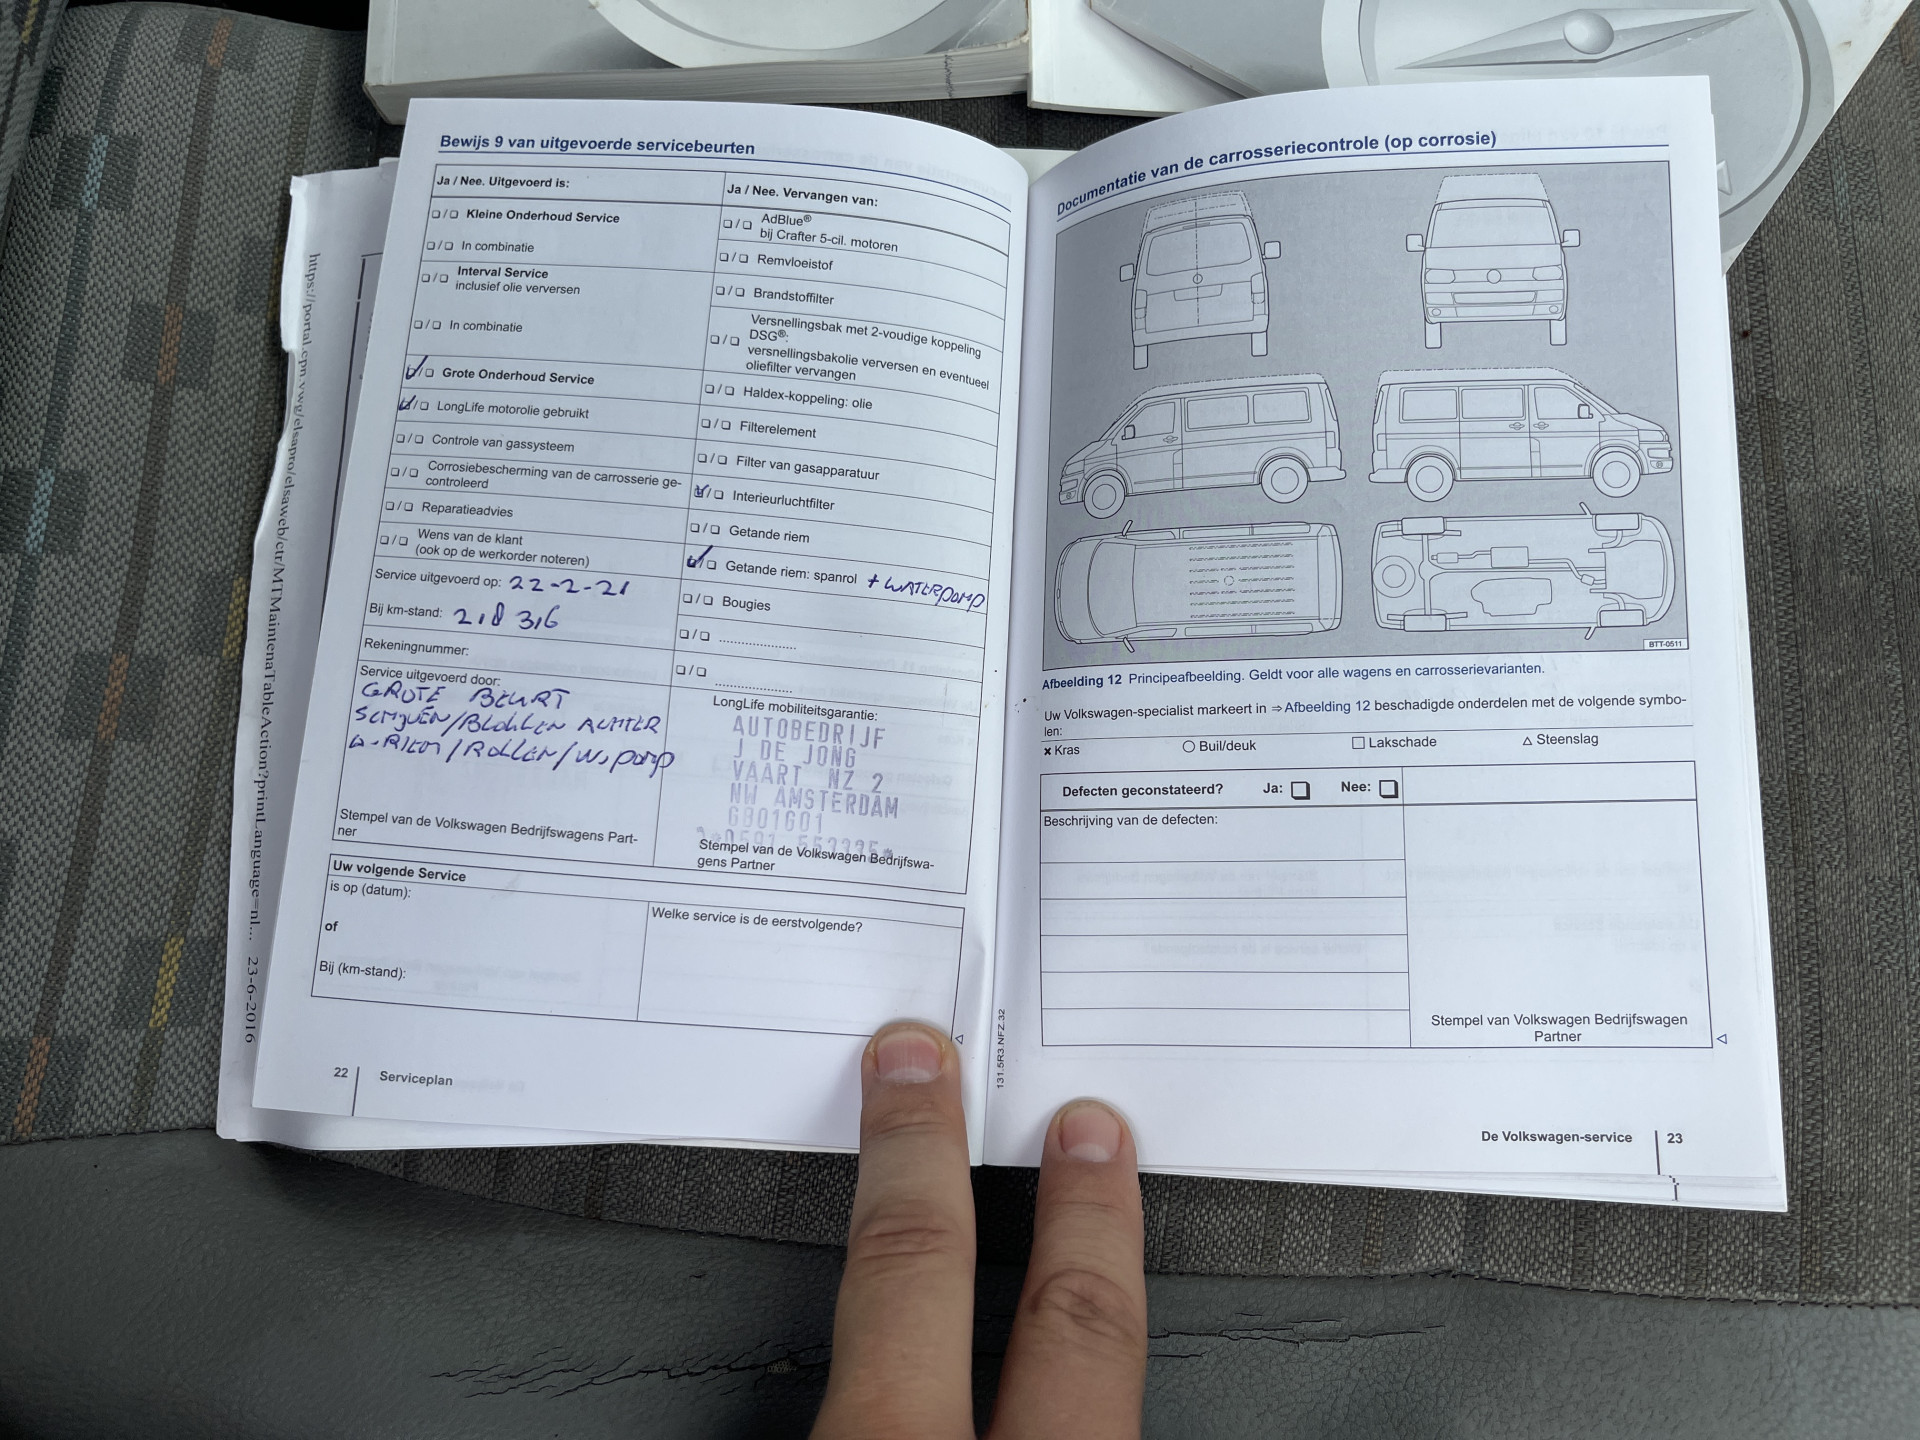 Bewijs 9 van uitgevoerde servicebeurten
Ja / Nee. Uitgevoerd is:
❏ / ❏ Kleine Onderhoud Service
❏ / ❏ In combinatie
❏ / ❏ Interval Service
inclusief olie verversen
❏ / ❏ In combinatie
❏ / ❏ Grote Onderhoud Service
❏ / ❏ LongLife motorolie gebruikt
❏ / ❏ Controle van gassysteem
❏ / ❏ Corrosiebescherming van de carrosserie ge-
controleerd
❏ / ❏ Reparatieadvies
❏ / ❏ Wens van de klant
(ook op de werkorder noteren)
Service uitgevoerd op: 22-2-21
Bij km-stand: 218 316
Rekeningnummer:
Service uitgevoerd door:
GROTE BEURT
SCHIJVEN/BLOKKEN ACHTER
D-RIEM/ROLLEN/W,POMP
Stempel van de Volkswagen Bedrijfswagens Part-
ner
Ja / Nee. Vervangen van:
❏ / ❏ AdBlue®
bij Crafter 5-cil. motoren
❏ / ❏ Remvloeistof
❏ / ❏ Brandstoffilter
❏ / ❏ Versnellingsbak met 2-voudige koppeling
DSG®:
versnellingsbakolie verversen en eventueel
oliefilter vervangen
❏ / ❏ Haldex-koppeling: olie
❏ / ❏ Filterelement
❏ / ❏ Filter van gasapparatuur
❏ / ❏ Interieurluchtfilter
❏ / ❏ Getande riem
❏ / ❏ Getande riem: spanrol + WATERPOMP
❏ / ❏ Bougies
❏ / ❏ ......................
❏ / ❏ ......................
LongLife mobiliteitsgarantie:
AUTOBEDRIJF
J DE JONG
VAART NZ 2
NW AMSTERDAM
GB01601
Stempel van de Volkswagen Bedrijfswa-
gens Partner
Uw volgende Service
is op (datum):
of
Bij (km-stand):
Welke service is de eerstvolgende?
22 Serviceplan
https://portal.cpn.vwg/elsapro/elsaweb/ctr/MTMaintenaTableAction?printLanguage=nl... 23-6-2016
131.5R3.NFZ.32
Documentatie van de carrosseriecontrole (op corrosie)
BTT-0511
Afbeelding 12 Principeafbeelding. Geldt voor alle wagens en carrosserievarianten.
Uw Volkswagen-specialist markeert in ⇒Afbeelding 12 beschadigde onderdelen met de volgende symbo-
len:
× Kras ○ Buil/deuk □ Lakschade △ Steenslag
Defecten geconstateerd? Ja: ❏ Nee: ❏
Beschrijving van de defecten:
Stempel van Volkswagen Bedrijfswagen
Partner
De Volkswagen-service 23